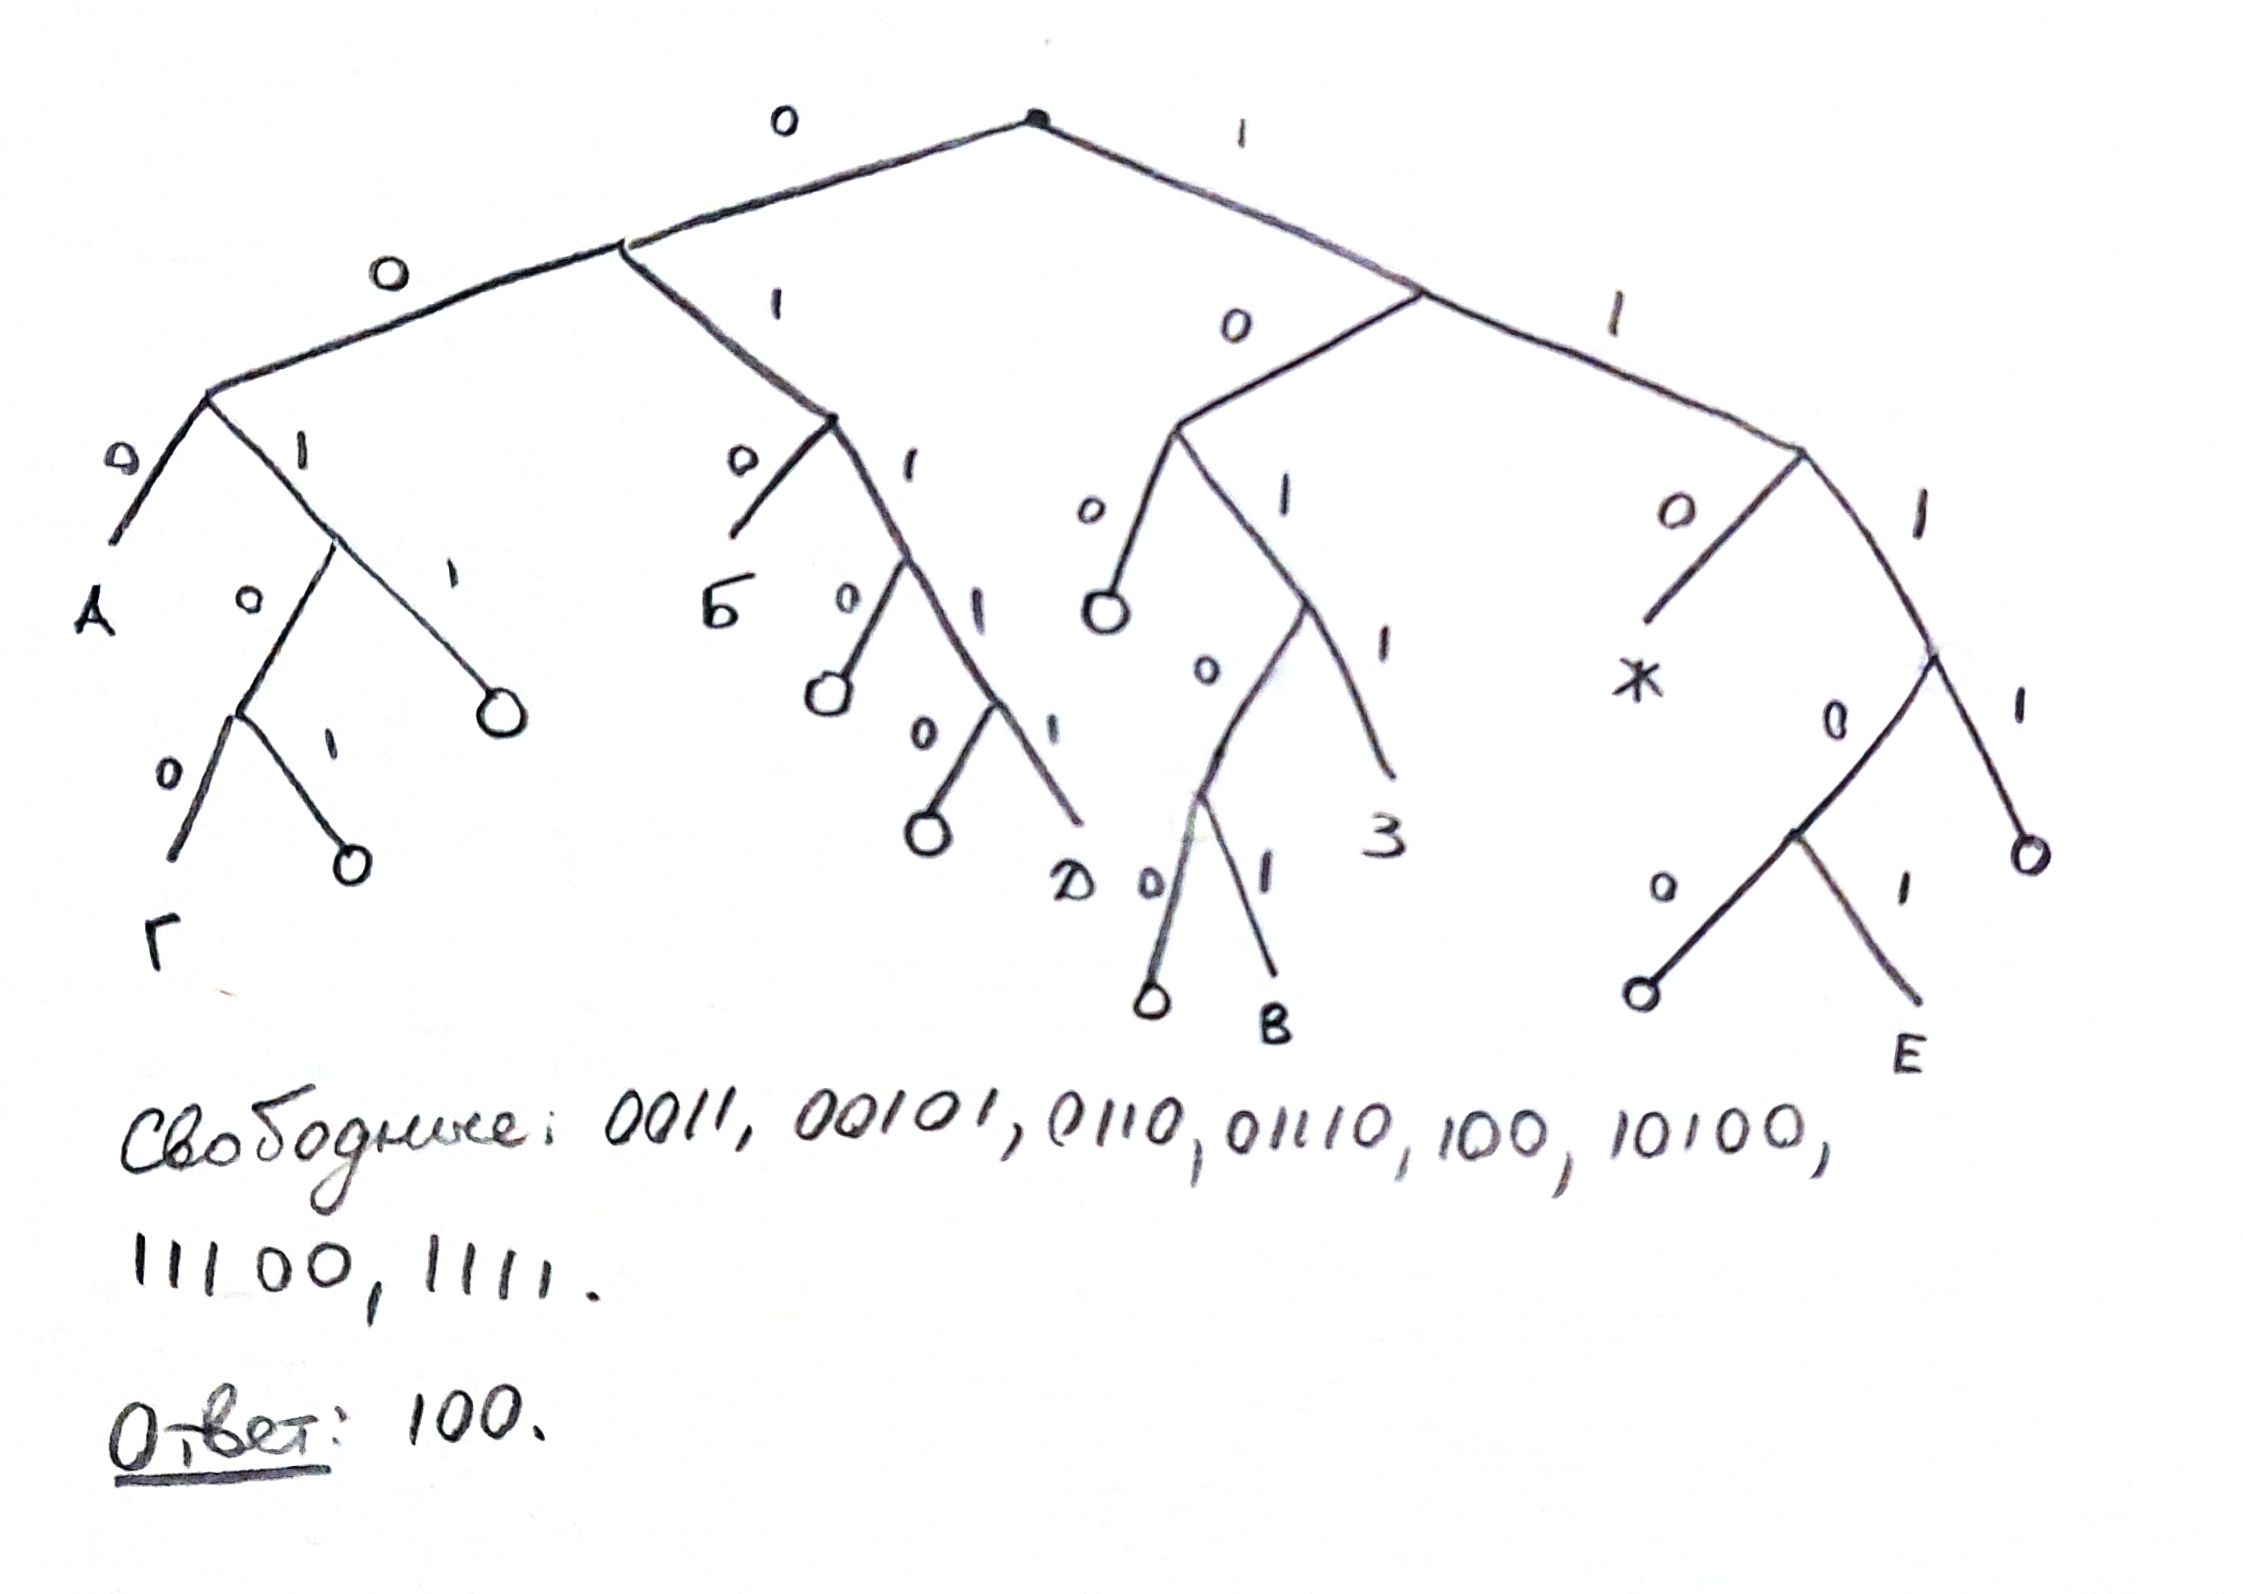 0 1
0 1 0 1
0 1 0 1 0 1 0 1
А 0 1 Б 0 1 0 1 Ж 0 1
0 1 0 1 0 1 З 0 1
Г Д В Е
Свободные: 0011, 00101, 0110, 01110, 100, 10100,
11100, 1111.
Ответ: 100.